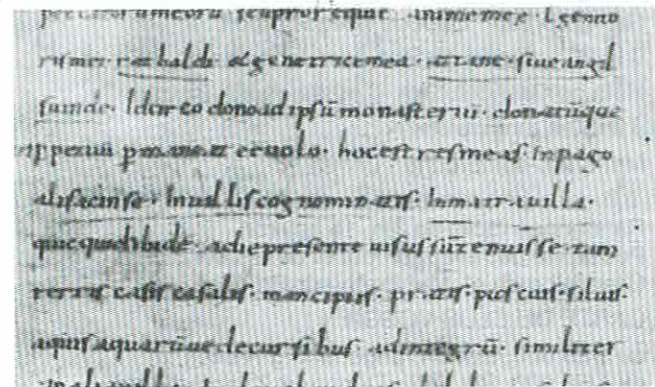 seu pro requie anime meę · l genito
ris mei · ratbaldi · & genetrice mea · attane · siue angil
suinde · Idcirco dono ad ipsū monasteriū · donatūque
inppetuū pmaneat ee uolo · hoc est res meas · in pago
alisacinse · In uillis cognominatis · In matrauilla ·
quicquid ibidē · adie presente uisus sū tenuisse · tam
terris casis casalis · mancipiis · pratis · pascuis · siluis ·
aquis aquarūue decursibus · adintegrū · similiter